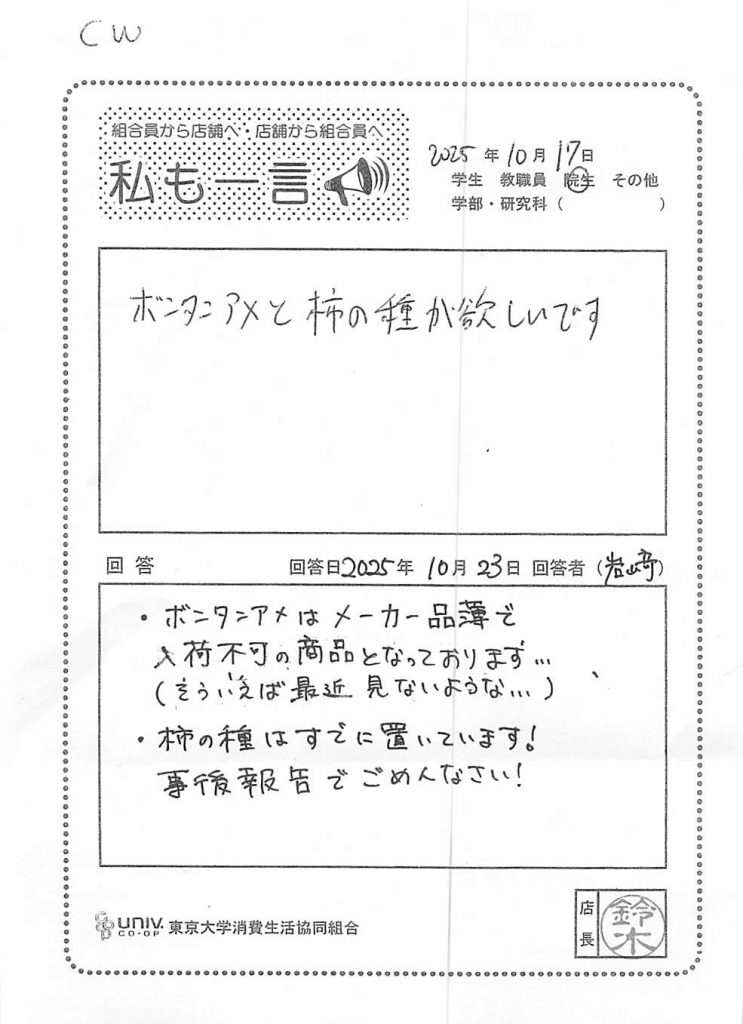 CW
組合員から店舗へ・店舗から組合員へ
私も一言
2025年10月17日
学生 教職員 院生 その他
学部・研究科( )
ボンタンアメと柿の種が欲しいです
回答 回答日2025年10月23日 回答者(岩崎)
・ボンタンアメはメーカー品薄で
入荷不可の商品となっております…
(そういえば最近見ないような…)
・柿の種はすでに置いています!
事後報告でごめんなさい!
UNIV. CO-OP 東京大学消費生活協同組合
店長 鈴木